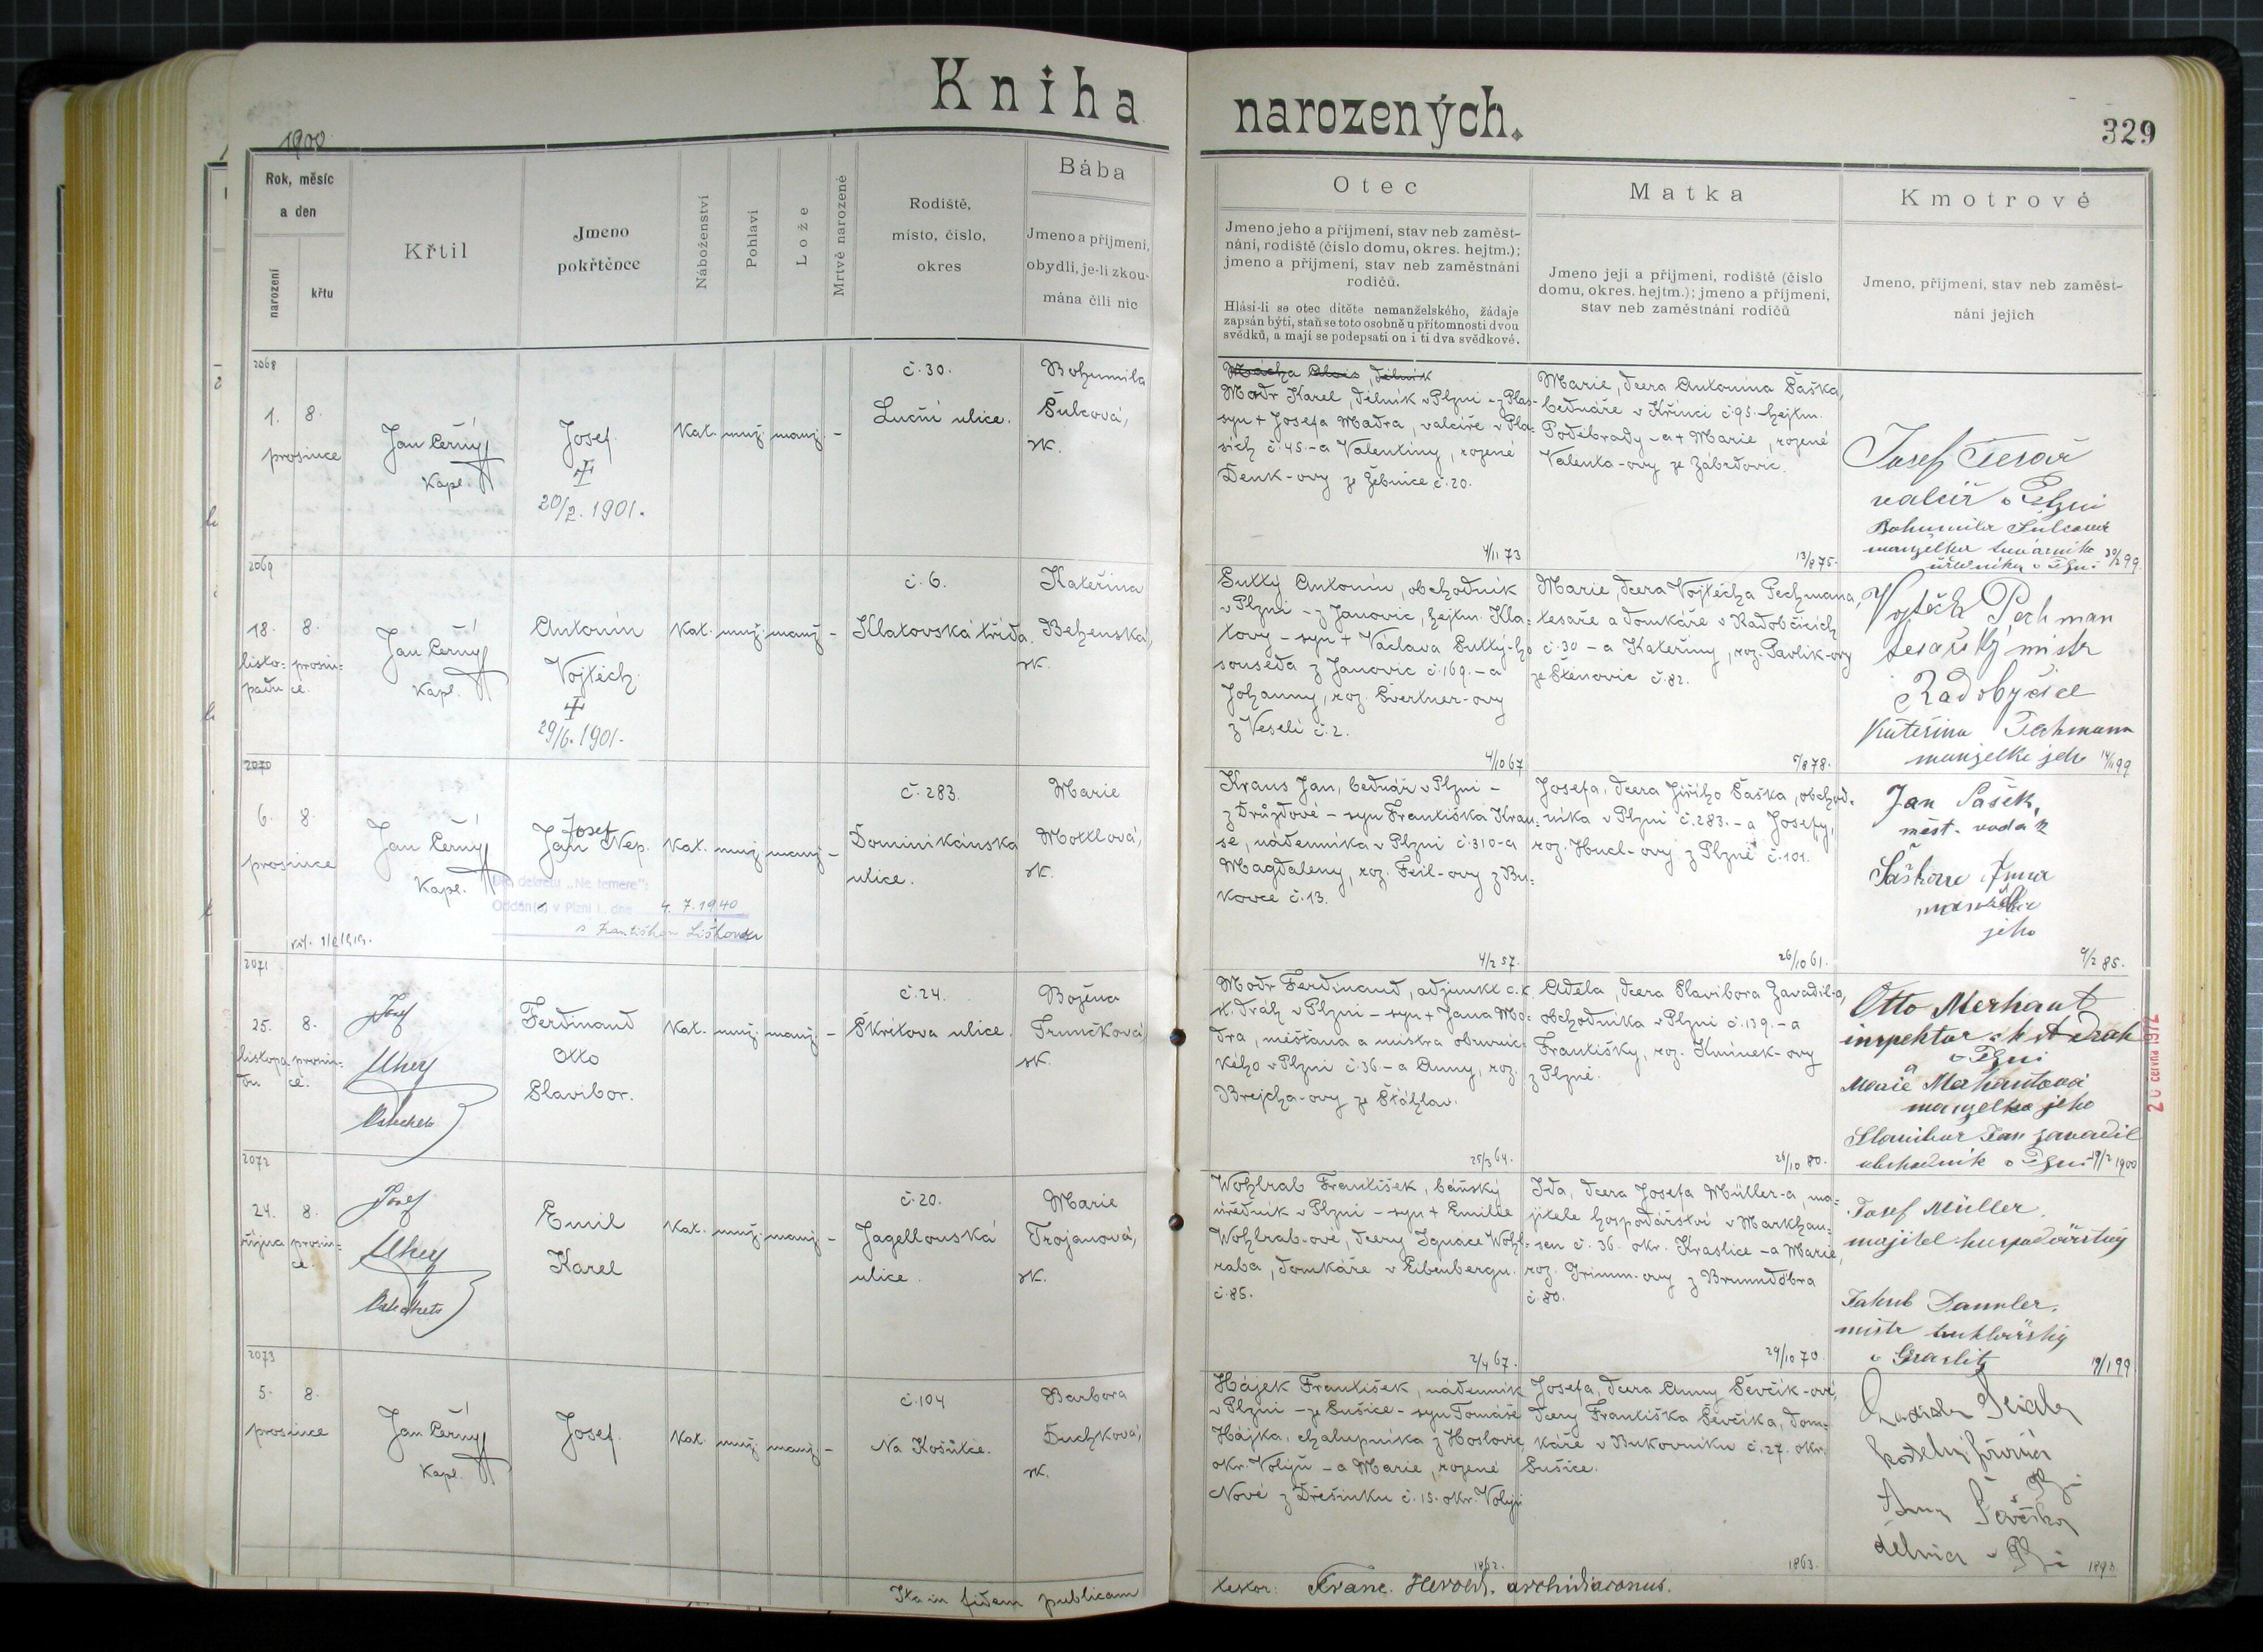 Kniha narozených.
329
1900
Rok, měsíc
a den
narození
křtu
Křtil
Jmeno
pokřtěnce
Náboženství
Pohlaví
Lože
Mrtvě narozené
Rodiště,
místo, číslo,
okres
Bába
Jmeno a příjmení,
obydlí, je-li zkou-
mána čili nic
Otec
Jmeno jeho a příjmení, stav neb zaměst-
nání, rodiště (číslo domu, okres. hejtm.);
jmeno a příjmení, stav neb zaměstnání
rodičů.
Hlásí-li se otec dítěte nemanželského, žádaje
zapsán býti, staň se toto osobně u přítomnosti dvou
svědků, a mají se podepsati on i ti dva svědkové.
Matka
Jmeno její a příjmení, rodiště (číslo
domu, okres. hejtm.); jmeno a příjmení,
stav neb zaměstnání rodičů
Kmotrové
Jmeno, příjmení, stav neb zaměst-
nání jejich
2068
1. 8.
prosince
Jan Černý
Kapl.
Josef
20/2. 1901.
Kat. muž. manž. -
č. 30.
Luční ulice.
Bohumila
Šulcová,
zk.
Mácha Alois, dělník
Modr Karel, dělník v Plzni - z Plas-
syn + Josefa Madra, valcíře v Pla-
sích č. 45. - a Valentiny, rozené
Denk-ovy ze Žebnice č. 20.
4/11 73
Marie, dcera Antonína Šaška,
bednáře v Křinci č. 95. - hejtm.
Poděbrady - a + Marie, rozené
Valenta-ovy ze Zábrdovic.
13/8 75.
Josef Tesař
valcíř v Plzni
Bohumila Šulcová
manželka továrního
úředníka v Plzni
99.
2069
18. 8.
listo- prosin-
padu ce.
Jan Černý
Kapl.
Antonín
Vojtěch
29/6. 1901.
Kat. muž. manž. -
č. 6.
Klatovská třída.
Kateřina
Behenská,
zk.
Suttý Antonín, obchodník
v Plzni - z Janovic, hejtm. Kla-
tovy - syn + Václava Suttý-ho
souseda z Janovic č. 169. - a
Johanny, roz. Švertner-ovy
z Veselí č. 2.
4/10 67
Marie, dcera Vojtěcha Pechmana,
tesaře a domkáře v Radobčicích
č. 30 - a Kateřiny, roz. Pavlík-ovy
ze Štěnovic č. 82.
5/8 78.
Vojtěch Pechman
tesařský mistr
Radobyčice
Kateřina Pechmann
manželka jeho
14/11 99
2070
6. 8.
prosince
Jan Černý
Kapl.
Josef
Jan Nep.
Dle dekretu „Ne temere“:
Oddán(a) v Plzni I. dne 4. 7. 1940
s Františkou Liškovou
Kat. muž. manž. -
č. 283.
Dominikánská
ulice.
Marie
Mottlová,
zk.
Kraus Jan, bednář v Plzni -
z Druzdové - syn Františka Krau-
se, nádenníka v Plzni č. 310 - a
Magdaleny, roz. Feil-ovy z Bu-
kovce č. 13.
4/2 57.
Josefa, dcera Jiřího Šaška, obchod-
níka v Plzni č. 283. - a Josefy,
roz. Hucl-ovy z Plzně č. 101.
26/10 61.
Jan Sašek,
měst.
Šašková Anna
manželka
jeho
9/2 85.
2071
25. 8.
listopa- prosin-
du ce.
Josef
Ferdinand
Otto
Slavibor.
Kat. muž. manž. -
č. 24.
Škrétova ulice.
Božena
Trunčková,
zk.
Modr Ferdinand, adjunkt c. k.
st. dráh v Plzni - syn + Jana Mo-
dra, měšťana a mistra obuvnic-
kého v Plzni č. 36. - a Anny, roz.
Brejcha-ovy ze Šťáhlav.
25/3 64.
Adela, dcera Slavibora Zavadil-a,
obchodníka v Plzni č. 139. - a
Františky, roz. Kmínek-ovy
z Plzně.
28/10 80.
Otto Merhaut
inspektor c. k. st. drah
v Plzni
a
Marie Merhautová
manželka jeho
Slavibor Jan Zavadil
obchodník v Plzni
1900
20 června 1972
2072
24. 8.
října prosin-
ce.
Josef
Emil
Karel
Kat. muž. manž. -
č. 20.
Jagellonská
ulice.
Marie
Trojanová,
zk.
Wohlrab František, báňský
úředník v Plzni - syn + Emilie
Wohlrab-ové, dcery Ignace Wohl-
raba, domkáře v Eibenbergu.
č. 85.
2/4 67.
Ida, dcera Josefa Müller-a, ma-
jitele hospodářství v Markhau-
sen č. 36. okr. Kraslice - a Marie,
roz. Grimm-ovy z Brunndöbra
č. 80.
29/10 70.
Josef Müller.
majitel hospodářství
Jakub
mistr truhlářský
v Graslitz
19/1 99.
2073
5. 8.
prosince
Jan Černý
Kapl.
Josef.
Kat. muž. manž. -
č. 104
Na Košutce.
Barbora
Duchková,
zk.
Hájek František, nádenník
v Plzni - ze Sušice - syn Tomáše
Hájka, chalupníka z Hoslovic
okr. Volyň - a Marie, rozené
Nové z Dřešinku č. 15. okr. Volyň
1862.
Josefa, dcera Anny Ševčík-ové,
dcery Františka Ševčíka, dom-
káře v Bukovníku č. 27. okr.
Sušice.
1863.
Anna Ševčíkova
dělnice v Plzni
1893
Ita in fidem publicam
testor: Franc. Herold, archidiaconus.